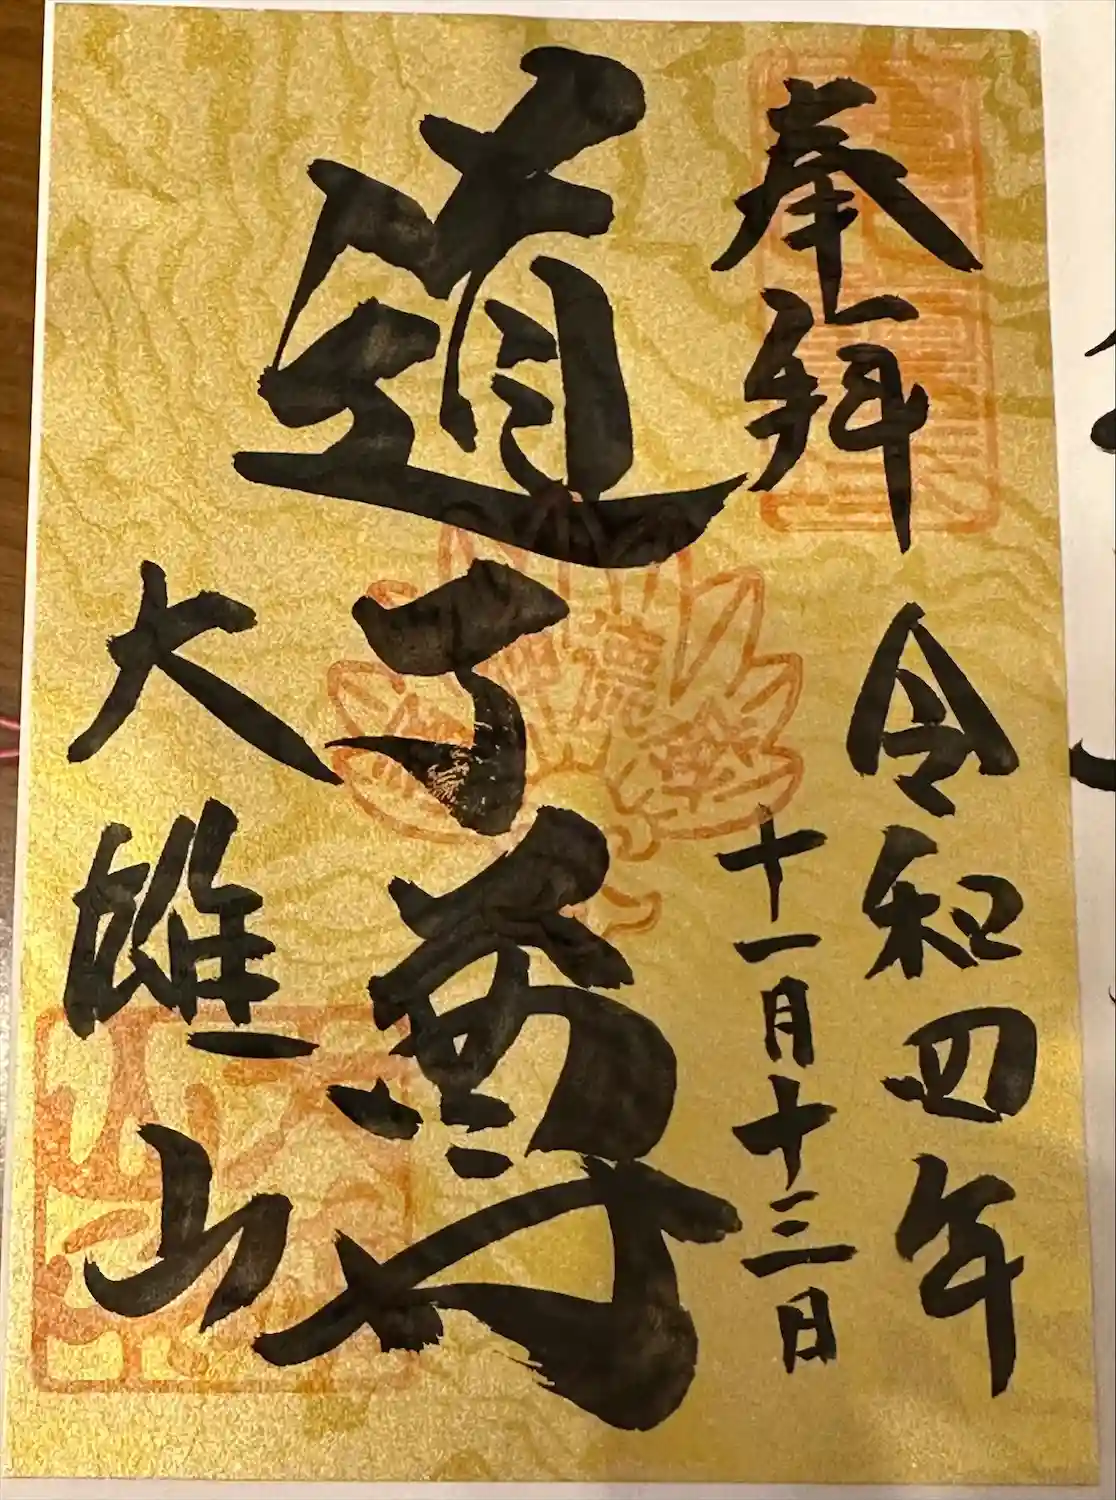 奉拝
令和四年
十一月十三日
道了尊
大雄山